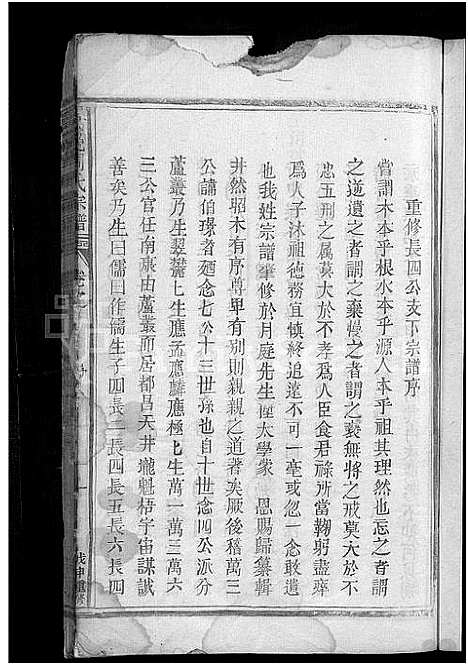 重修長四公支下宗譜序
嘗謂木本乎根水本乎源人本乎祖其理然也忘之者謂
之逆遺之者謂之棄慢之者謂之褻無將之戒莫大於不
忠五刑之属莫大於不孝爲人臣食君祿所當鞠躬盡瘁
爲人子沐祖德務宜慎終追遠不可一毫或忽一念敢遺
也我姓宗譜肇修於月庭先生陞太學蒙 恩賜歸纂輯
井然昭木有序尊卑有別則親親之道著矣厥後稽萬三
公諱伯璟者廼念七公十三世孫也自十世念四公派分
蘆叢乃生翌薺七生應孟應麟應極七生萬一萬三萬六
三公官任南康由蘆叢而居都昌天井壠魁梧宇宙謀誠
善矣乃生曰儒曰作儒生子四長二長四長五長六長四
氏宗譜
戊申重修